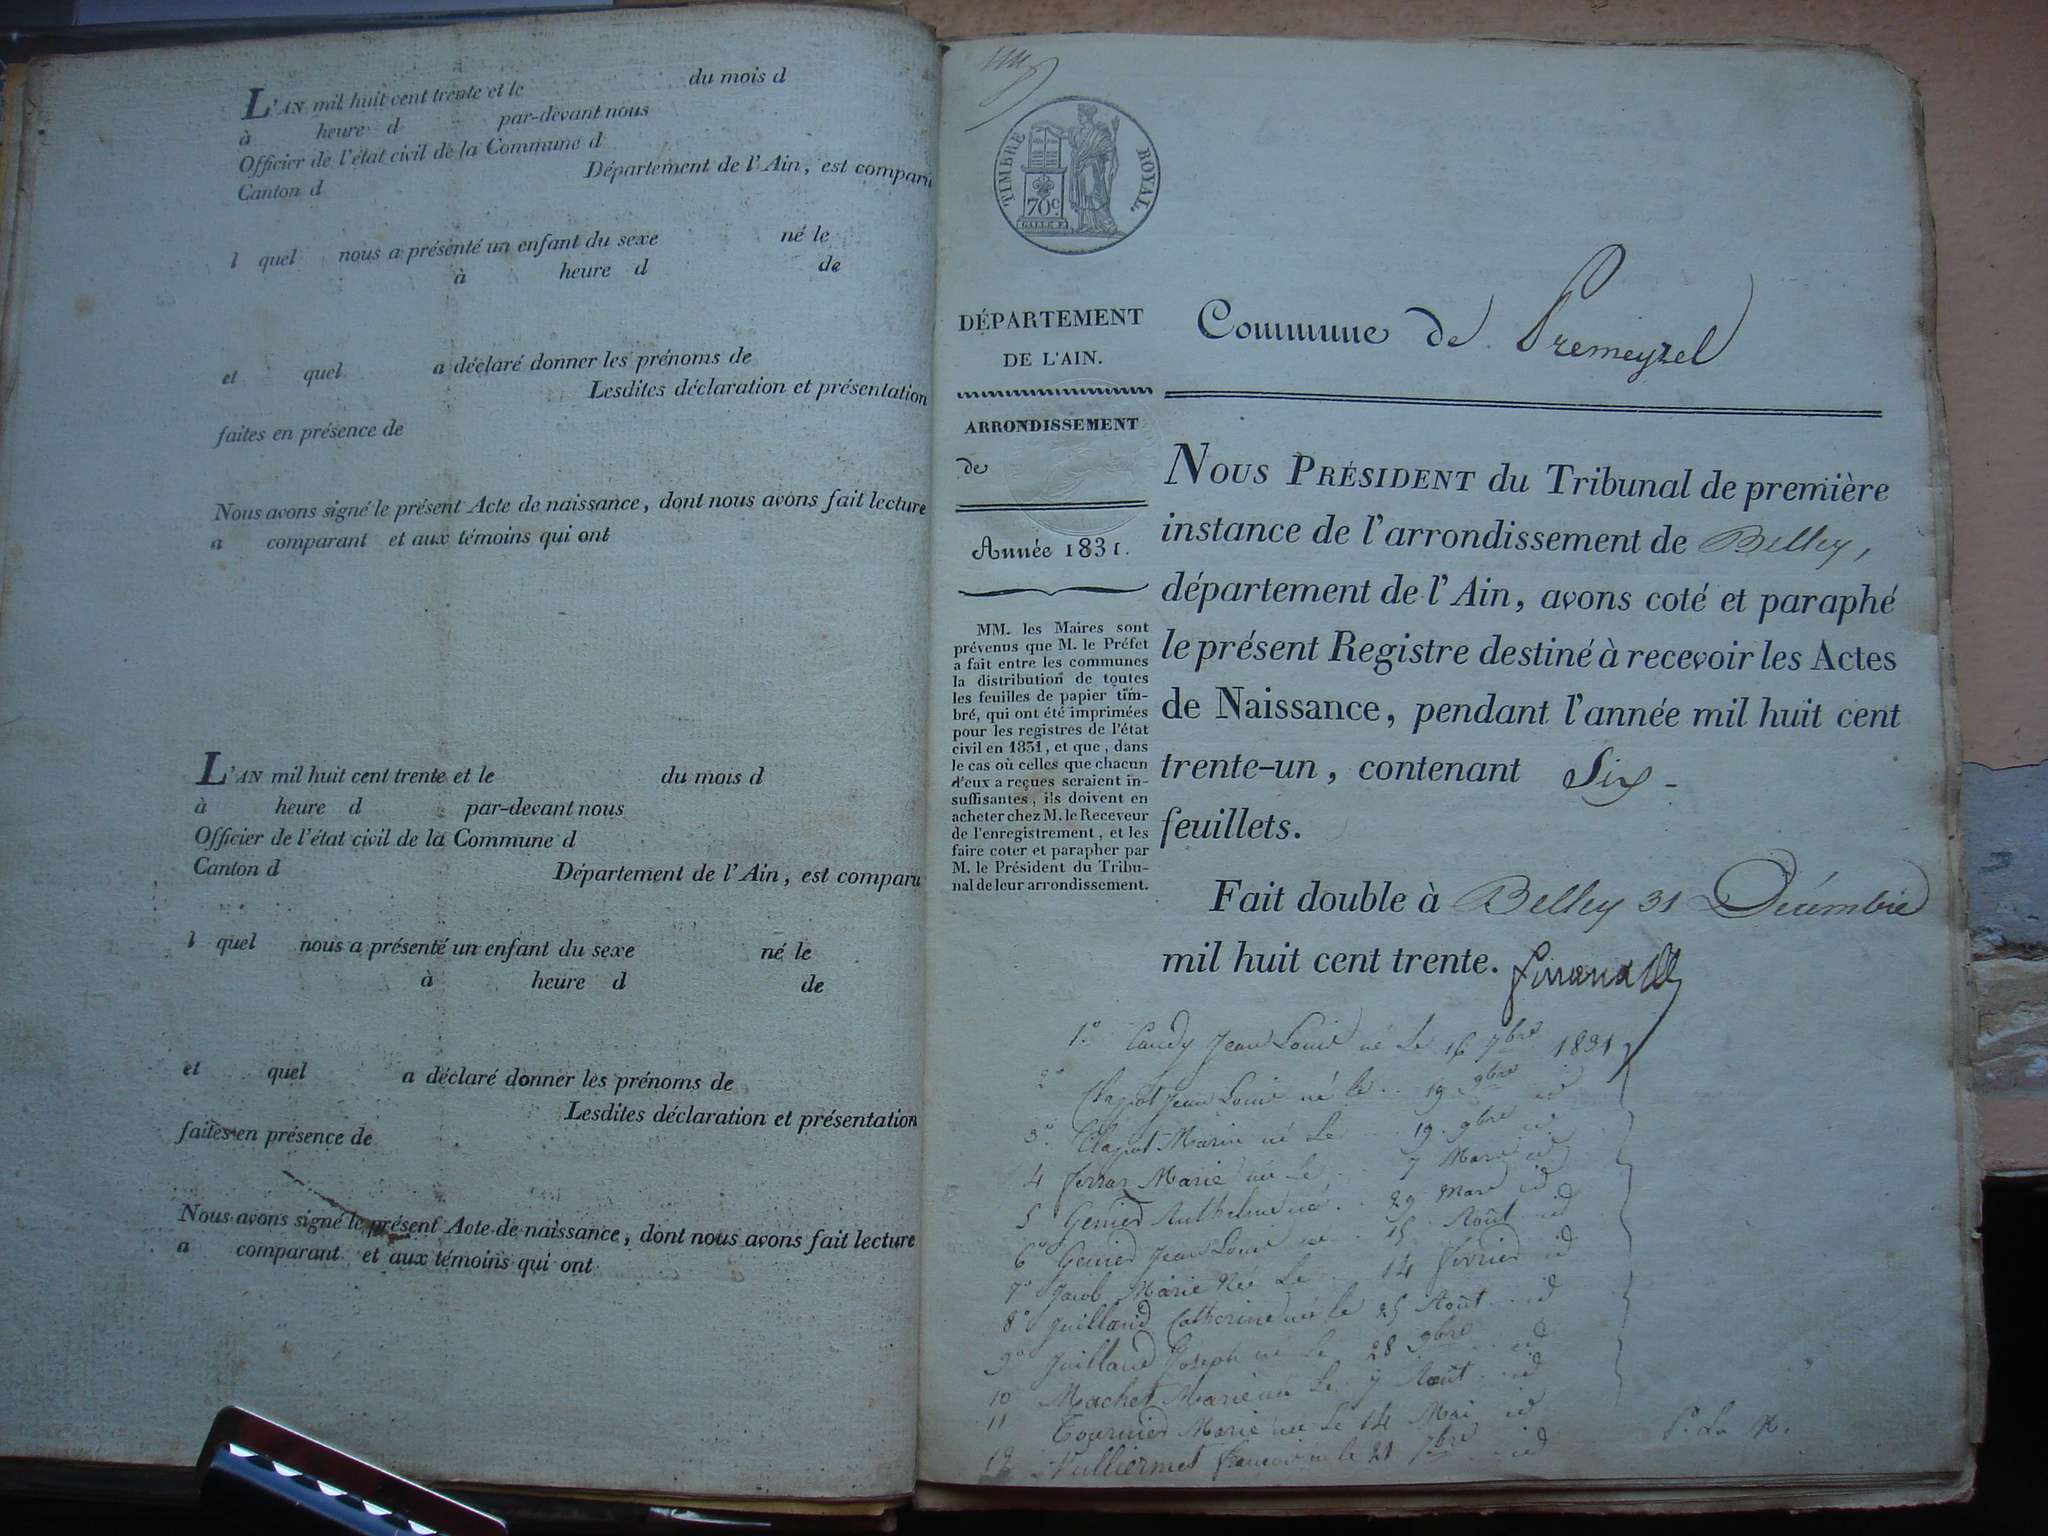 L'AN mil huit cent trente et le du mois d
à heure d par-devant nous
Officier de l'état civil de la Commune d
Canton d Département de l'Ain, est comparu
l quel nous a présenté un enfant du sexe né le
à heure d de
et quel a déclaré donner les prénoms de
Lesdites déclaration et présentation
faites en présence de
Nous avons signé le présent Acte de naissance, dont nous avons fait lecture
a comparant et aux témoins qui ont
L'AN mil huit cent trente et le du mois d
à heure d par-devant nous
Officier de l'état civil de la Commune d
Canton d Département de l'Ain, est comparu
l quel nous a présenté un enfant du sexe né le
à heure d de
et quel a déclaré donner les prénoms de
Lesdites déclaration et présentation
faites en présence de
Nous avons signé le présent Acte de naissance, dont nous avons fait lecture
a comparant et aux témoins qui ont
TIMBRE ROYAL.
70c
DÉPARTEMENT
DE L'AIN.
ARRONDISSEMENT
de
Année 1831.
MM. les Maires sont
prévenus que M. le Préfet
a fait entre les communes
la distribution de toutes
les feuilles de papier tim-
bré, qui ont été imprimées
pour les registres de l'état
civil en 1831, et que, dans
le cas où celles que chacun
d'eux a reçues seraient in-
suffisantes, ils doivent en
acheter chez M. le Receveur
de l'enregistrement, et les
faire coter et parapher par
M. le Président du Tribu-
nal de leur arrondissement.
Commune de Premeyzel
NOUS PRÉSIDENT du Tribunal de première
instance de l'arrondissement de Belley,
département de l'Ain, avons coté et paraphé
le présent Registre destiné à recevoir les Actes
de Naissance, pendant l'année mil huit cent
trente-un, contenant Six -
feuillets.
Fait double à Belley 31 Décembre
mil huit cent trente.
1.° Jean Louis né le 16 7bre 1831
2° Jean Louis né le 19 9bre id
3°. Marin né Le 19. 9bre id
4 Marie née le 7 Mars id
5 29 Mars id
6° Jean Louis né 15 Août id
7° Jacob Marie Née Le 14 février id
8° Juilland Catherine née le 25 Août id
9° Juilland Joseph né Le 28 9bre id
10 Machet Marie née Le 7 Août id
11 Tournier Marie née Le 14 Mai id
12 Vulliermet né le 21 7bre id